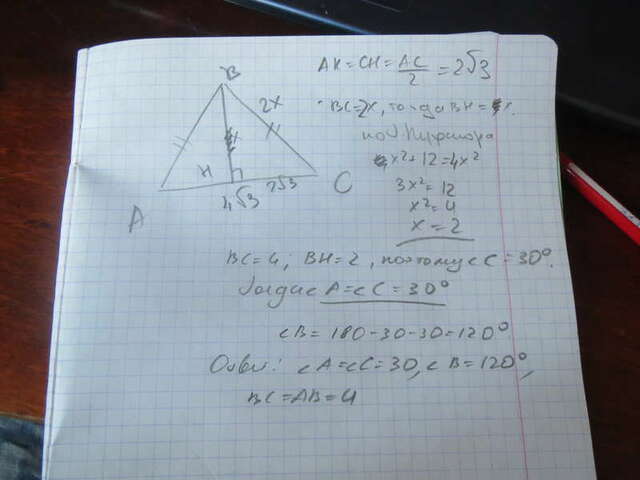 B
2x
H
A
4√3
2√3
C
AH = CH = AC/2 = 2√3
BC = 2x, тогда BH = x.
по т. Пифагора
x² + 12 = 4x²
3x² = 12
x² = 4
x = 2
BC = 4; BH = 2, поэтому ∠C = 30°.
Тогда ∠A = ∠C = 30°
∠B = 180 - 30 - 30 = 120°
Ответ: ∠A = ∠C = 30, ∠B = 120°,
BC = AB = 4